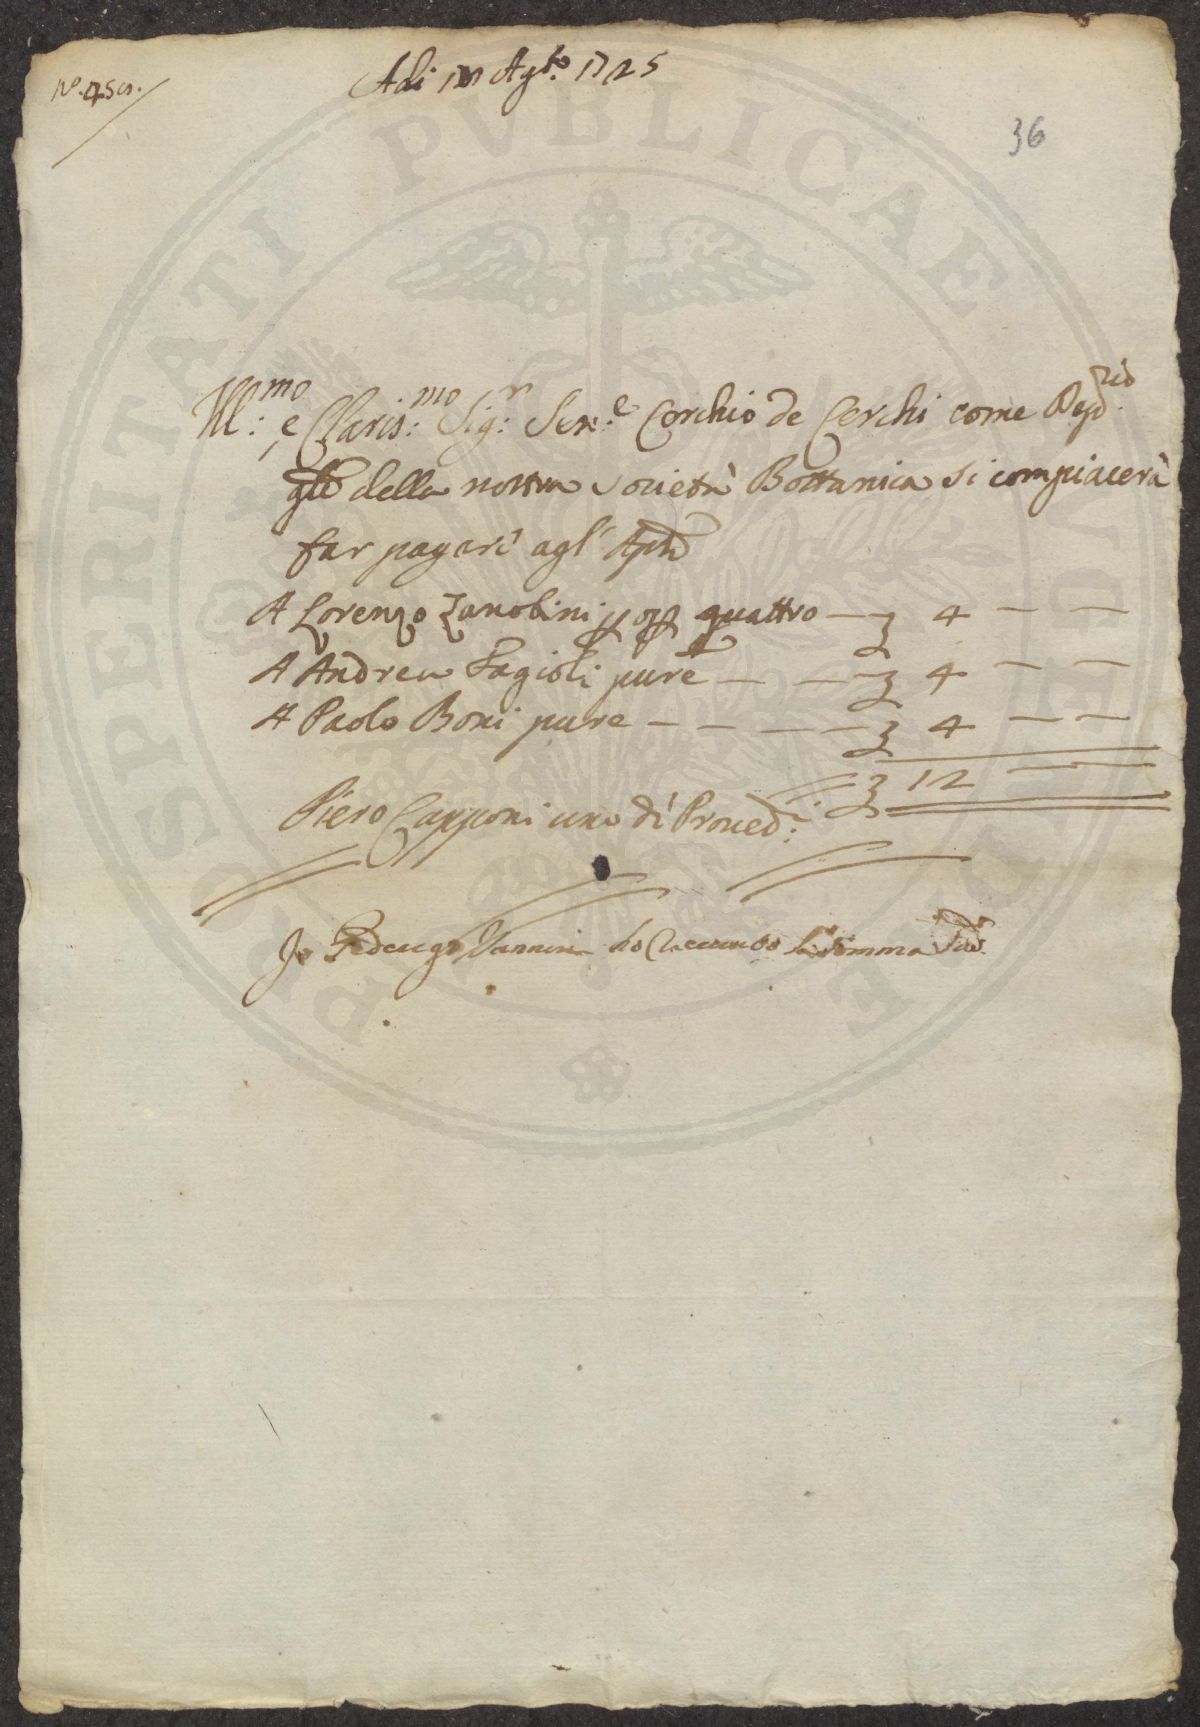 N.º 459.
Adi 17 Ag.to 1725
36
Ill:mo e Claris:mo Sig:r Sen:e Cerchio de Cerchi come Dep:rio
gle della nostra società Bottanica si compiacerà
far pagare agl'
A Lorenzo Zanobini quattro — 4 — —
A Andrea Fagioli pure — — 4 — —
A Paolo Boni pure — — — — 4 — —
12 — —
Piero Capponi uno di Proved:i
Io Vannini ho ricevuto la somma
PROSPERITATI PVBLICAE